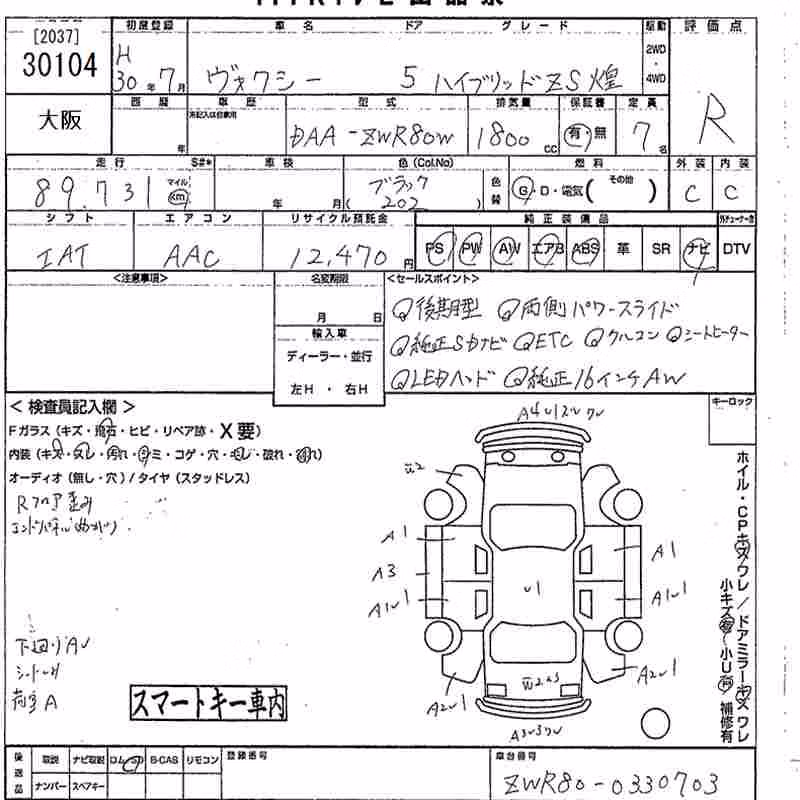 [2037]
30104
大阪
初度登録 車名 ドア グレード 駆動 評価点
H 30年 7月 ヴォクシー 5 ハイブリッドZS煌 2WD・4WD R
西暦 車歴 型式 排気量 保証書 定員
年 未記入は自家用 DAA-ZWR80W 1800cc 有・無 7名
走行 S#* 車検 色(Col.No) 燃料 外装 内装
89,731 マイル km 年 月 ブラック (202) 色替 G・D・電気( その他 ) C C
シフト エアコン リサイクル預託金 純正装備品
IAT AAC 12,470円 PS PW AW エアB ABS 革 SR ナビ DTV
<注意事項> 名変期限 <セールスポイント>
月 日
輸入車
ディーラー・並行
左H・右H
Q後期型 Q両側パワースライド
Q純正SDナビ QETC Qクルコン Qシートヒーター
QLEDヘッド Q純正16インチAW
<検査員記入欄> キーロック
Fガラス(キズ・飛石・ヒビ・リペア跡・X要)
内装(キズ・スレ・汚れ・シミ・コゲ・穴・破れ)
オーディオ(無し・穴)/タイヤ(スタッドレス)
Rフロア歪み
エンドパネル曲がり
下廻りAU
荷室A
スマートキー車内
A1
A3
A1U1
U1
A1
A1U1
A2U1
A2U1
ホイル・CPキズワレ/ドアミラーキズワレ
小キズ有(小U有)補修有
後送品 取説 ナビ取説 ロム・SD B-CAS リモコン 登録番号 車台番号
ナンバー スペアキー ZWR80-0330703